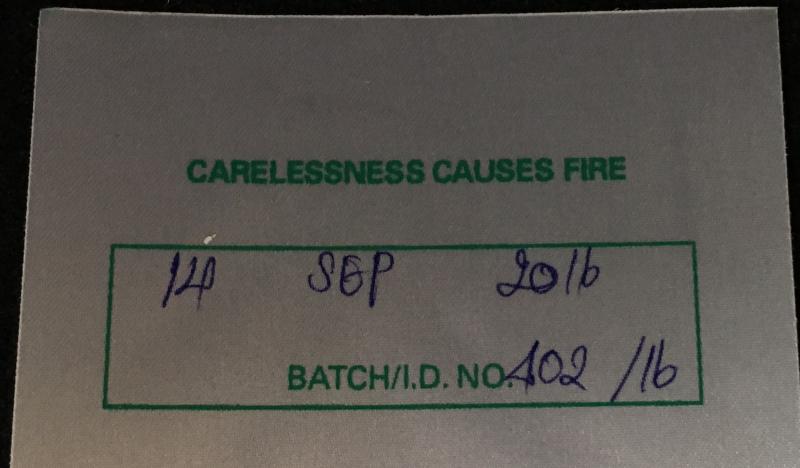 CARELESSNESS CAUSES FIRE
14 SEP 2016
BATCH/I.D. NO. 402 /16